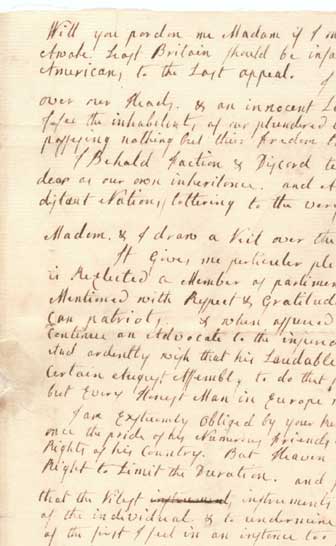 Will you pardon me Madam if I
Awake. Least Britain should be
Americans, to the Last appeal.
over our Heads. & an innocent
the inhabitants, of our plundered
possessing nothing but their freedom
I Behald Faction & Discord
dear as our own inheritence. and
distant Nations, tottering to the verg
Madam. & I draw a Veil over the
It Gives me particular
is ReElected a Member of parliment
Mentioned with Respect & Gratitud
can patriot, & when assured
Continue an Advocate to the injured
and ardently wish that his Laudable
Certain August Assembly, to do that
but Every Honest Man in Europe
I am Extremly Obliged by your
once the pride of his Numerous friends
Rights of his Country. But Heaven
Right to Limit the Duration. and
that the Vilest instruments, instruments
of the individual & to undermine
of the first I feel in an instance